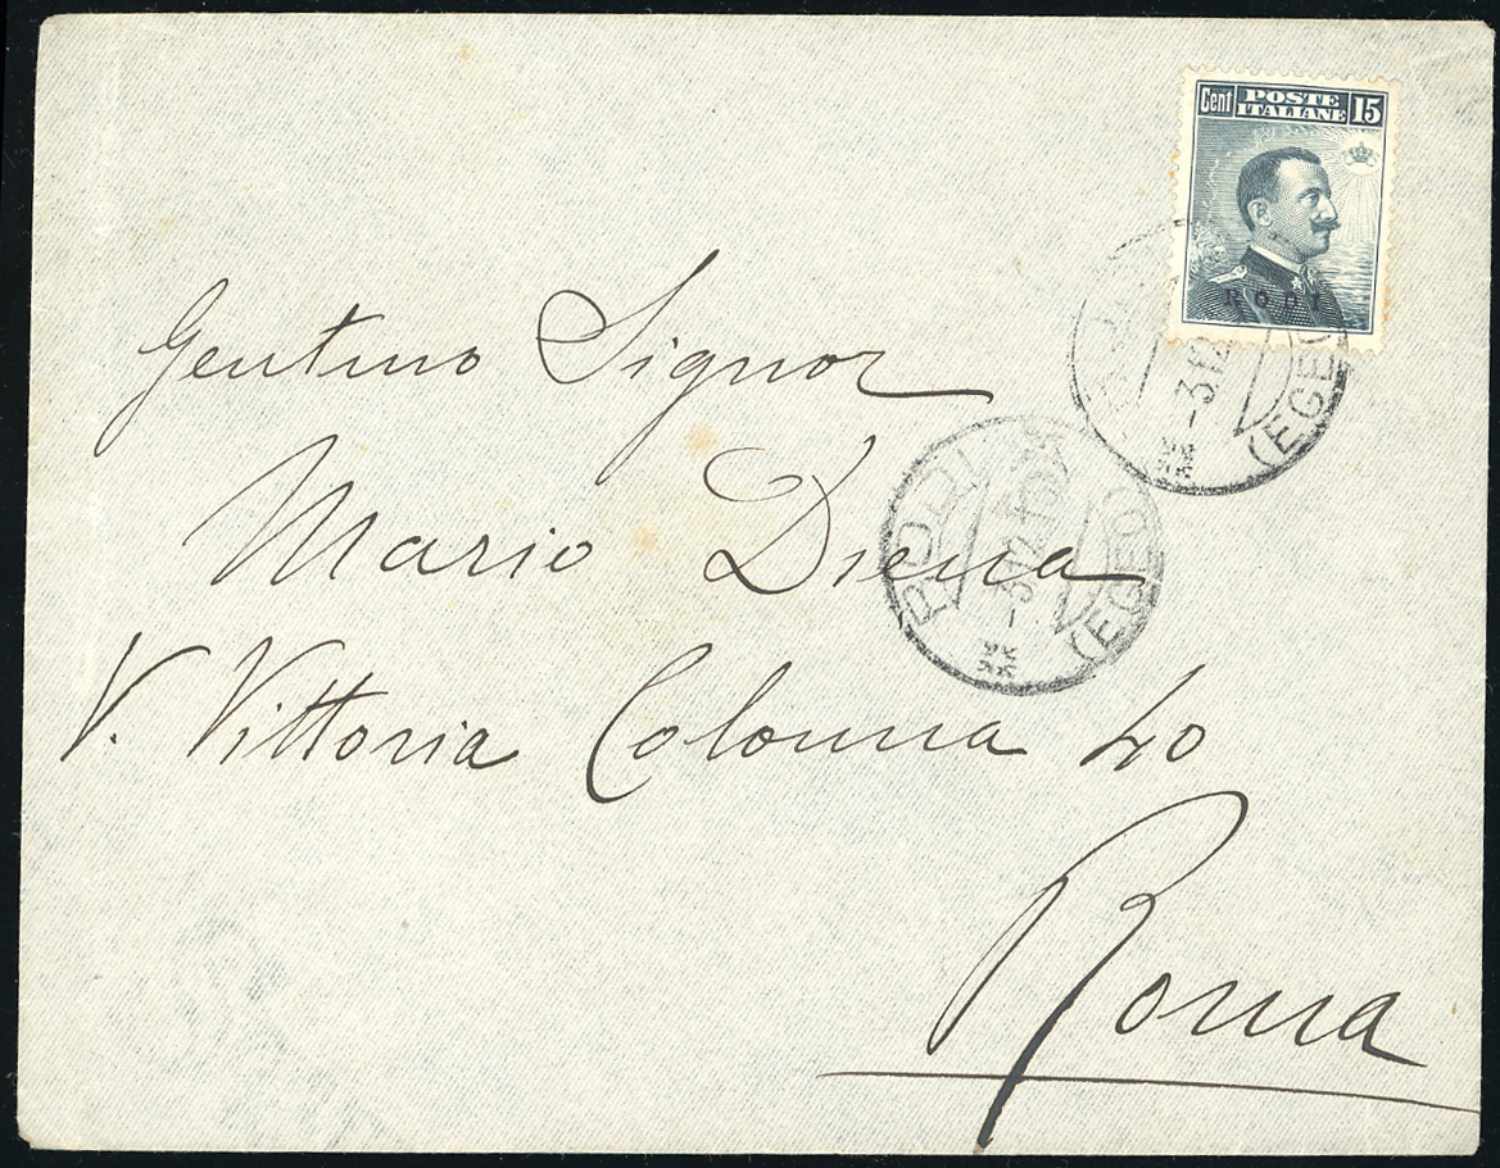 Cent POSTE ITALIANE 15
RODI
3.12
(EGEO
Gentmo Signor
RODI
3.12.12
(EGEO)
Mario Diena
V. Vittoria Colonna 40
Roma